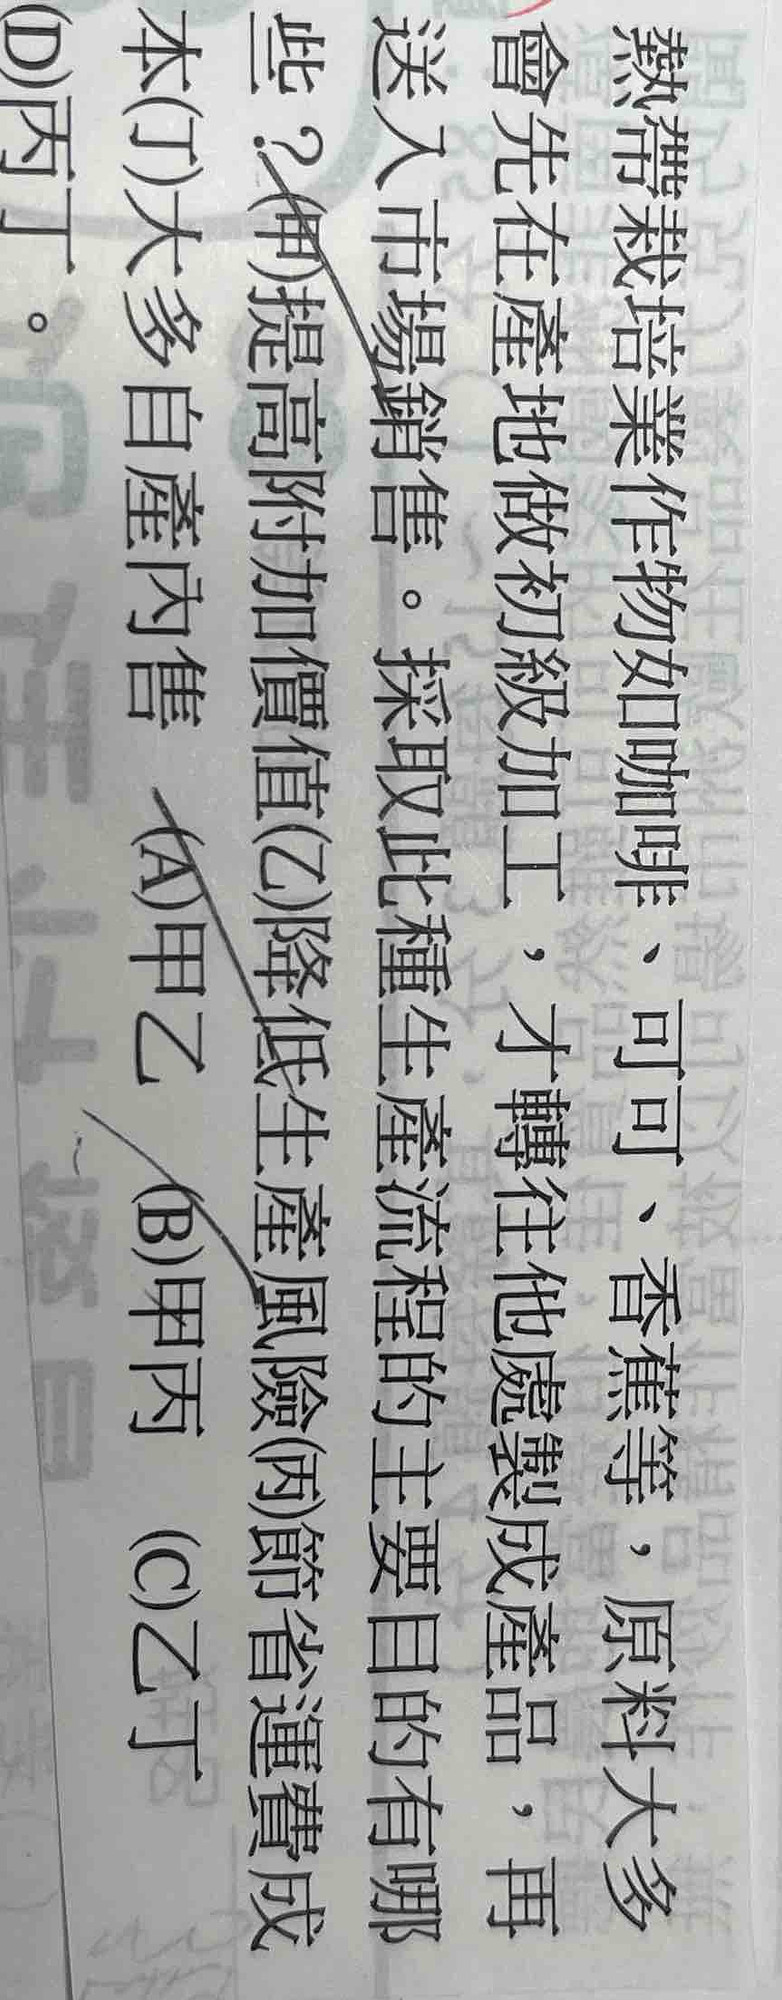 熱帶栽培業作物如咖啡、可可、香蕉等，原料大多
會先在產地做初級加工，才轉往他處製成產品，再
送入市場銷售。採取此種生產流程的主要目的有哪
些？(甲)提高附加價值(乙)降低生產風險(丙)節省運費成
本(丁)大多自產內售　(A)甲乙　(B)甲丙　(C)乙丁
(D)丙丁。